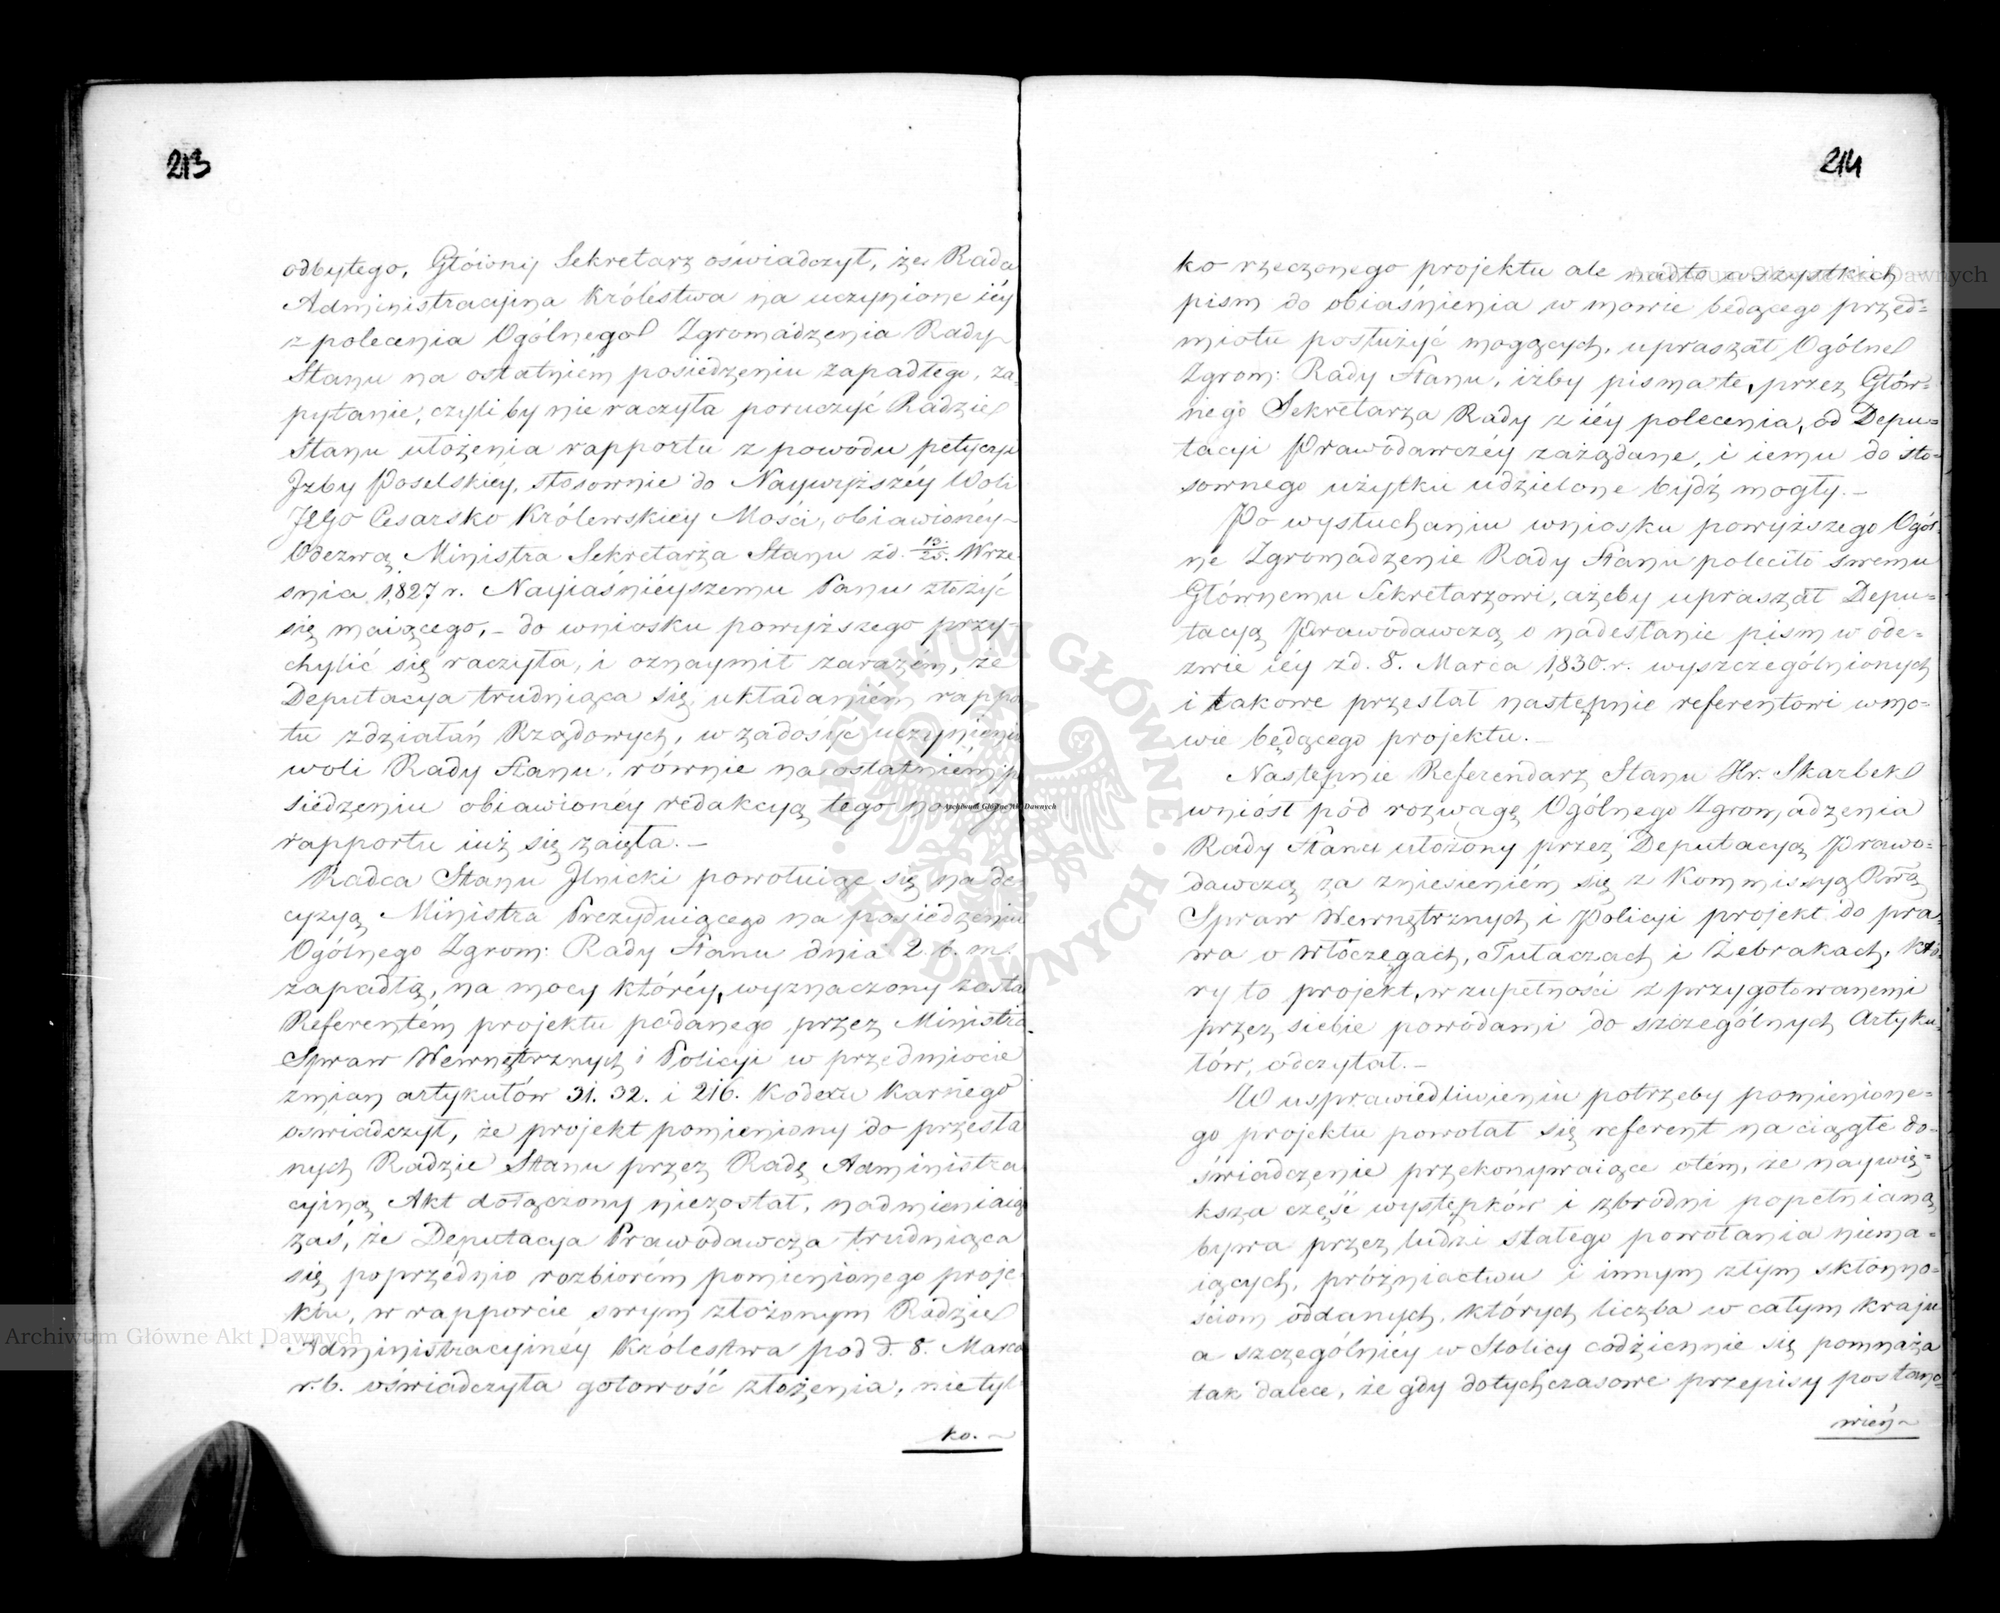 213
odbytego, Główny Sekretarz oświadczył, że Rada
Administracyina Królestwa na uczynione iéy
z polecenia Ogólnego Zgromadzenia Rady
Stanu na ostatniem posiedzeniu zapadłego, za-
pytanie, czyliby nie raczyła poruczyć Radzie
Stanu ułożenia rapportu z powodu petycyi
Izby Poselskiéy, stosownie do Naywyższéy Woli
JEGO Cesarsko Królewskiéy Mości, obiawionéy
Odezwą Ministra Sekretarza Stanu z d. 13/25. Wrze-
śnia 1827 r. Nayiaśnieyszemu Panu złożyć
się maiącego, – do wniosku powyższego przy-
chylić się raczyła, i oznaymił zarazem, że
Deputacya trudniąca się układaniém rappo
tu z działań Rządowych, w zadosyć uczynieniu
woli Rady Stanu, równie na ostatniém p
siedzeniu obiawionéy redakcyą tego nowego
rapportu iuż się zaięła. –
Radca Stanu Ilnicki powołuiąc się na de-
cyzyą Ministra Prezyduiącego na posiedzeniu
Ogólnego Zgrom: Rady Stanu dnia 2. b. m.
zapadłą, na mocy któréy, wyznaczony zosta
Referentém projektu podanego przez Ministra
Spraw Wewnętrznych i Policyi w przedmiocie
zmian artykułów 31. 32. i 216. Kodexu Karnego
oświadczył, że projekt pomieniony do przesła
nych Radzie Stanu przez Radę Administra
cyiną Akt dołączony niezostał, nadmieniaią
zaś, że Deputacya Prawodawcza trudniąca
się poprzednio rozbiorém pomienionego proje-
ktu, w rapporcie swym złożonym Radzie
Administracyinéy Królestwa pod d. 8. Marca
r. b. oświadczyła gotowość złożenia, nietyl
ko. –
214
ko rzeczonego projektu ale nadto wszystkich
pism do obiaśnienia w mowie będącego przed-
miotu posłużyć mogących, upraszał Ogólne
Zgrom: Rady Stanu, iżby pisma te, przez Głów-
nego Sekretarza Rady z iéy polecenia, od Depu-
tacyi Prawodawczéy zażądane, i iemu do sto-
sownego użytku udzielone bydź mogły. –
Po wysłuchaniu wniosku powyższego Ogól-
ne Zgromadzenie Rady Stanu poleciło swemu
Głównemu Sekretarzowi, ażeby upraszał Depu-
tacyą Prawodawczą o nadesłanie pism w ode-
zwie iéy z d. 8. Marca 1830. r. wyszczególnionych
i takowe przesłał następnie referentowi w mo-
wie będącego projektu. –
Następnie Referendarz Stanu Hr. Skarbek
wniósł pód rozwagę Ogólnego Zgromadzenia
Rady Stanu ułożony przez Deputacyą Prawo-
dawczą za zniesieniém się z Kommissyą Rwą
Spraw Wewnętrznych i Policyi projekt do pra-
wa o Włóczęgach, Tułaczach i Żebrakach, któ-
ry to projekt, w zupełności z przygotowanemi
przez siebie powodami do szczególnych Artyku-
łów, odczytał. –
W usprawiedliwieniu potrzeby pomienione-
go projektu powołał się referent na ciągłe do-
świadczenie przekonywaiące o tém, że naywię-
ksza część występków i zbrodni popełnianą
bywa przez ludzi stałego powołania niema-
iących, próżniactwu i innym złym skłonno-
ściom oddanych, których liczba w całym kraju
a szczególniéy w Stolicy codziennie się pomnaża
tak dalece, że gdy dotychczasowe przepisy postano-
wień –
Archiwum Główne Akt Dawnych
Archiwum Główne Akt Dawnych
Archiwum Główne Akt Dawnych
ARCHIWUM GŁÓWNE AKT DAWNYCH